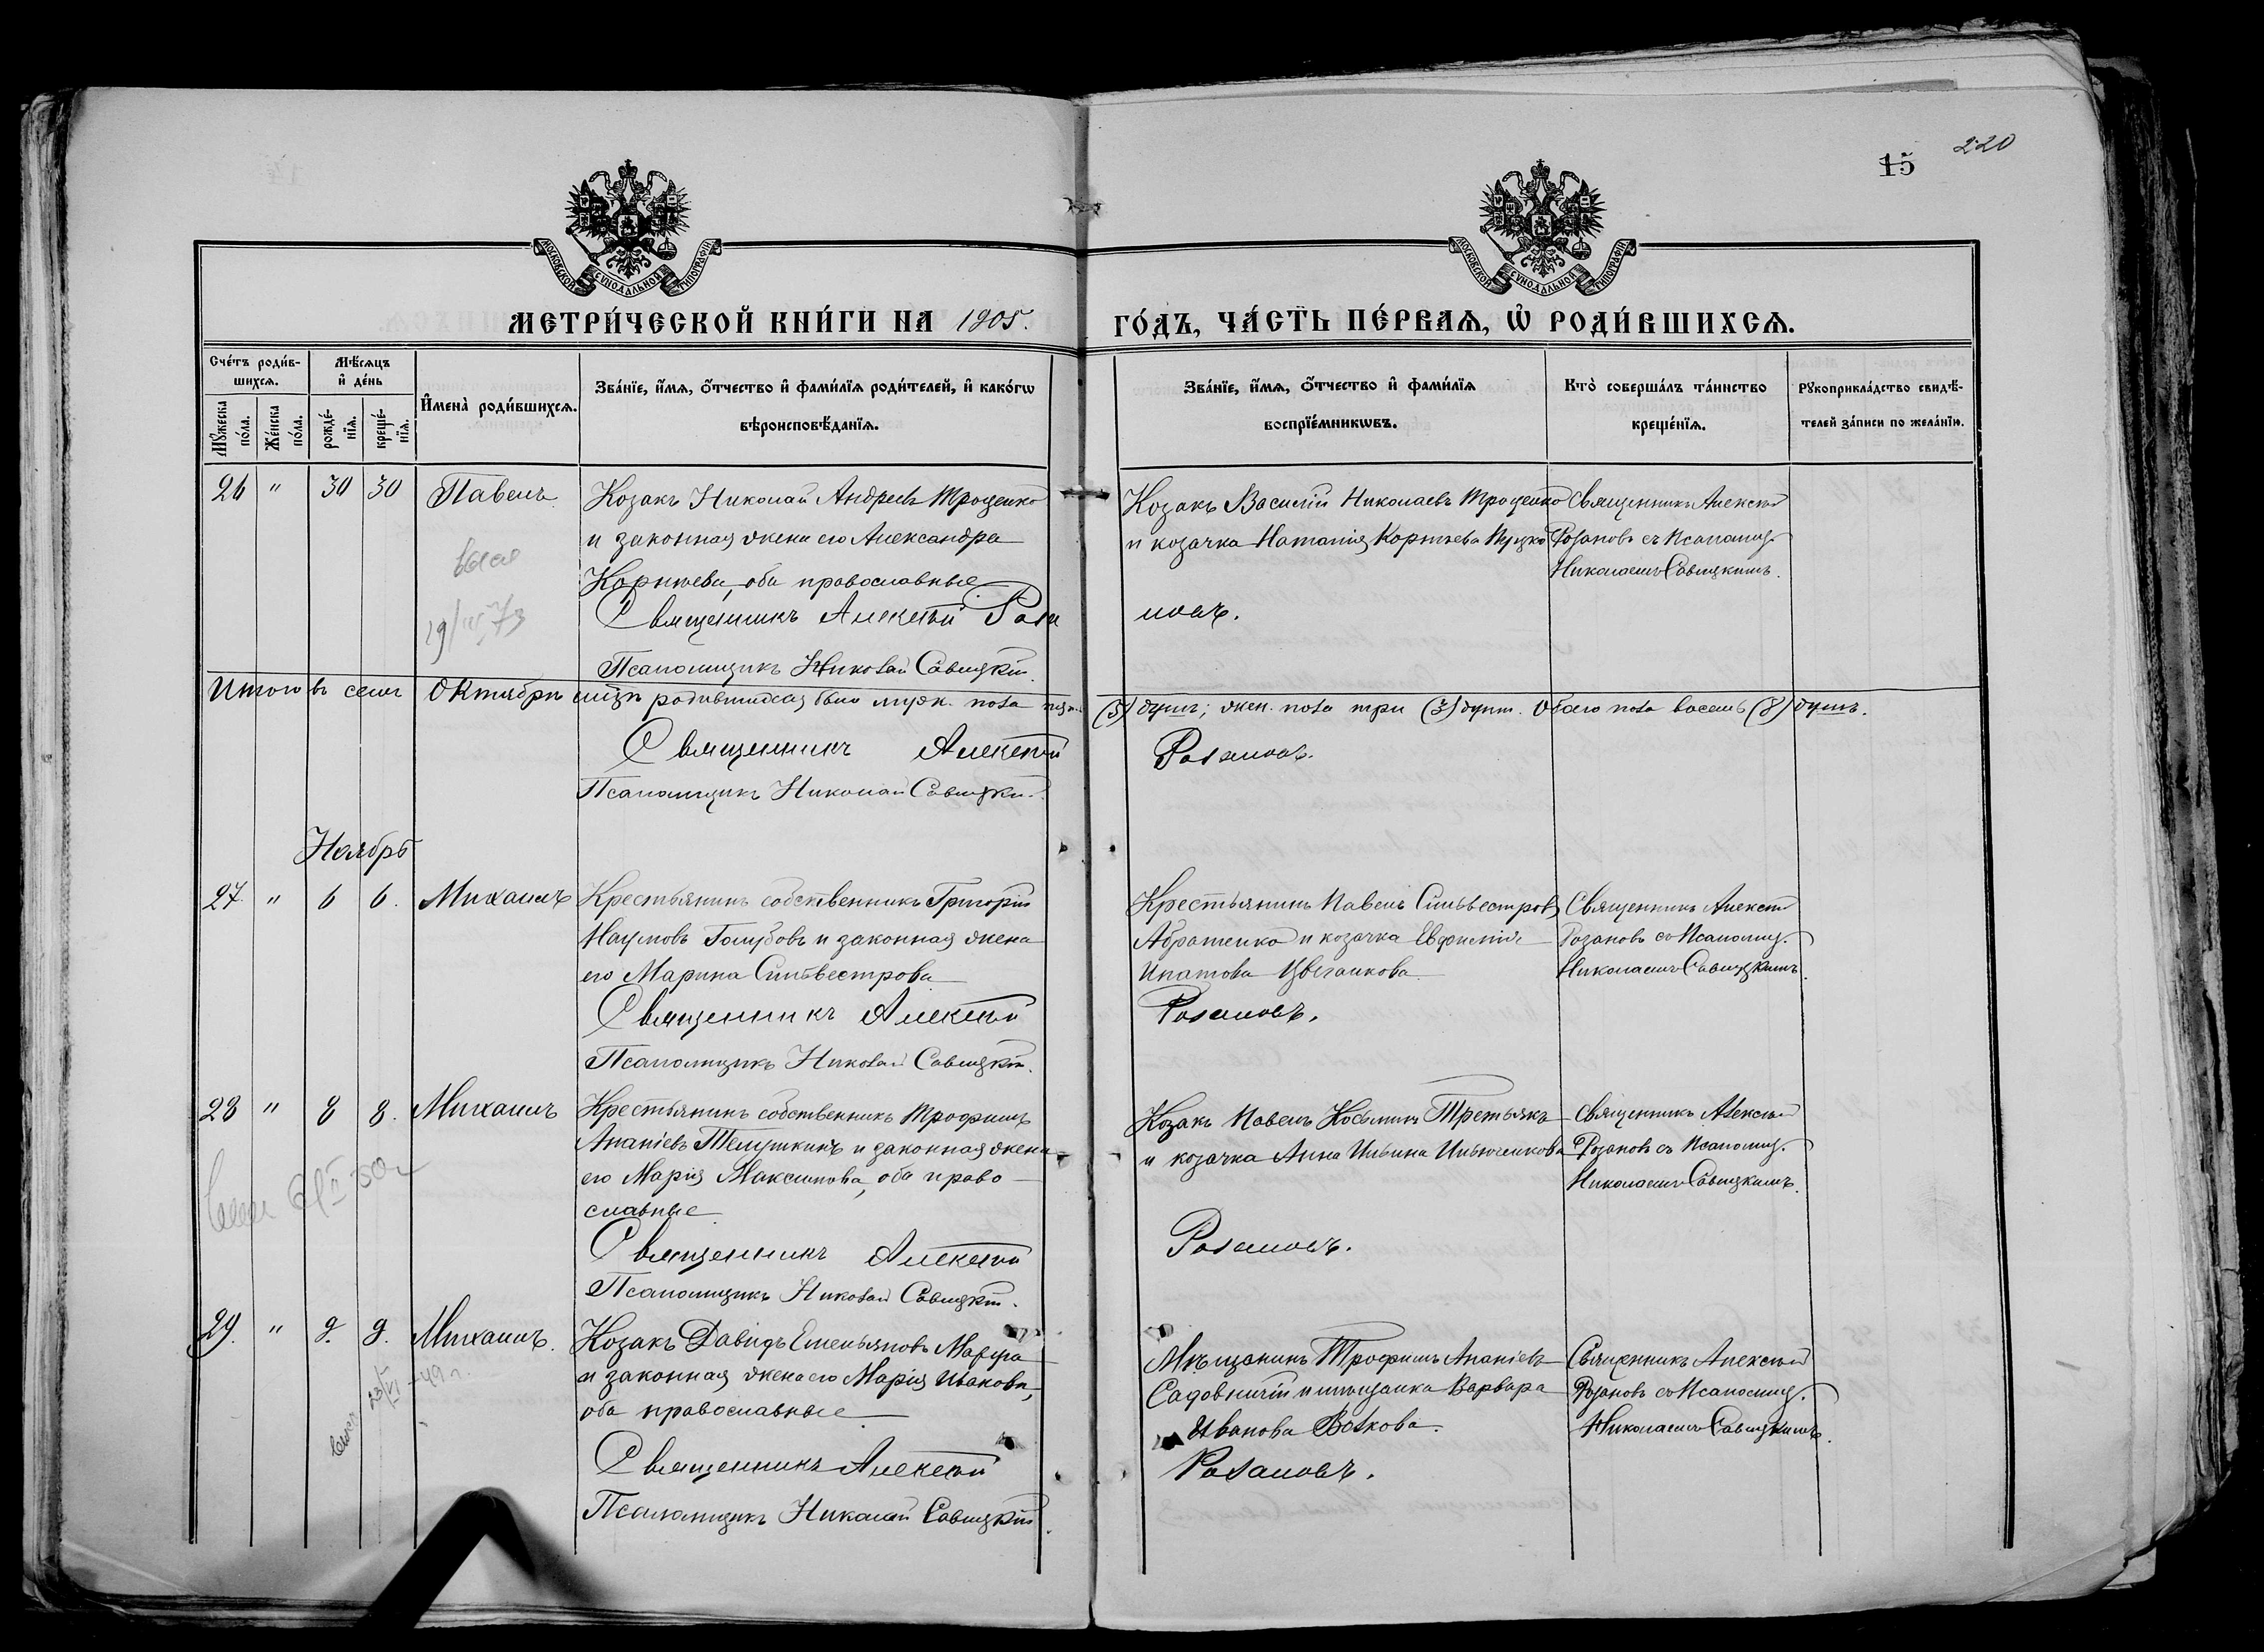 220
15
МОСКОВСКОЙ СѴНОДАЛЬНОЙ ТИПОГРАФІИ
МОСКОВСКОЙ СѴНОДАЛЬНОЙ ТИПОГРАФІИ
МЕТРИ́ЧЕСКОЙ КНИ́ГИ НА 1905.
ГО́ДЪ, ЧА́СТЬ ПЕ́РВАѦ, Ѡ҆ РОДИ́ВШИХСѦ.
Сче́тъ роди́в-
шихсѧ.
Мѣ́сѧцъ
и҆ де́нь
Мꙋ́жеска
по́ла.
Же́нска
по́ла.
рожде́-
нїѧ.
креще́-
нїѧ.
И҆мена̀ роди́вшихсѧ.
Зва́нїе, и҆́мѧ, ѻ҆́тчество и҆ фами́лїѧ роди́телей, и҆ како́гѡ
вѣроисповѣ́данїѧ.
Зва́нїе, и҆́мѧ, ѻ҆́тчество и҆ фами́лїѧ
воспрїе́мникѡвъ.
Кто̀ соверша́лъ та́инство
креще́нїѧ.
Рꙋкоприкла́дство свидѣ́-
телей за́писи по жела́нїю.
26 " 30 30 Павелъ
Козакъ Николай Андреевъ Троценко
и законная жена его Александра
Корнѣева, оба православные.
Священникъ Алексѣй Роза
Псаломщикъ Николай Савицкій.
Козакъ Василій Николаевъ Троценко
и козачка Наталія Корнѣева
новъ.
Священникъ Алексѣй
Розановъ съ Псаломщ.
Николаемъ Савицкимъ.
19/IV 73
Итого въ семъ Октябрѣ м҃цѣ родившихся было муж. пола пять (5) душъ; жен. пола три (3) душ. Обоего пола восемь (8) душъ.
Священникъ Алексѣй Розановъ.
Псаломщикъ Николай Савицкій.
Ноябрь
27. " 6 6. Михаилъ
Крестьянинъ собственникъ Григорій
Наумовъ Голубовъ и законная жена
его Марина Сильвестрова
Священникъ Алексѣй
Псаломщикъ Николай Савицкій.
Крестьянинъ Павелъ Сильвестровъ
Абраменко и козачка Евфимія
Ипатова Цыганкова.
Розановъ.
Священникъ Алексѣй
Розановъ съ Псаломщ.
Николаемъ Савицкимъ.
28 " 8 8. Михаилъ
Крестьянинъ собственникъ Трофимъ
Ананіевъ Телушкинъ и законная жена
его Марія Максимова, оба право-
славные
Священникъ Алексѣй
Псаломщикъ Николай Савицкій.
Козакъ Павелъ Косьминъ Третьякъ
и козачка Анна Ильина Ильюченкова
Розановъ.
Священникъ Алексѣй
Розановъ съ Псаломщ.
Николаемъ Савицкимъ.
29. " 9. 9. Михаилъ.
Козакъ Давидъ Емельяновъ
и законная жена его Марія Иванова,
оба православные
Священникъ Алексѣй
Псаломщикъ Николай Савицкій.
Мѣщанинъ Трофимъ Ананіевъ
Садовничій и мѣщанка Варвара
Иванова Волкова.
Розановъ.
Священникъ Алексѣй
Розановъ съ Псаломщ.
Николаемъ Савицкимъ.